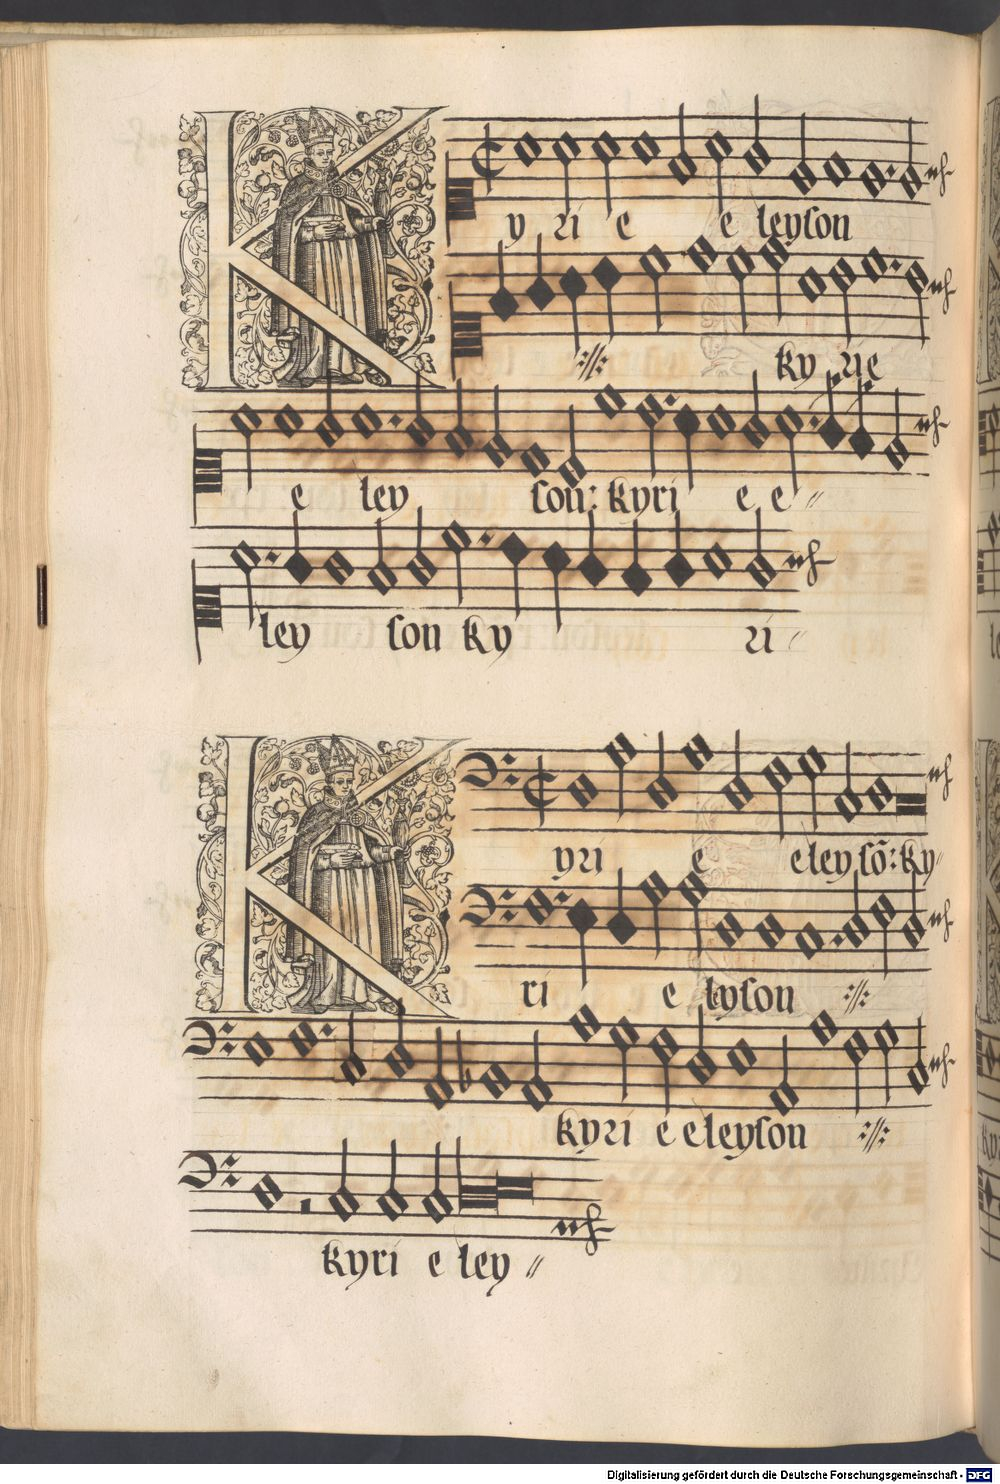 K yri e e leyson
://: ky rie
e ley son: kyri e e "
ley son ky ri "
K yri e eley sō: ky "
ri e leyson :://:
kyri e eleyson :://:
kyri e ley "
Digitalisierung gefördert durch die Deutsche Forschungsgemeinschaft - DFG